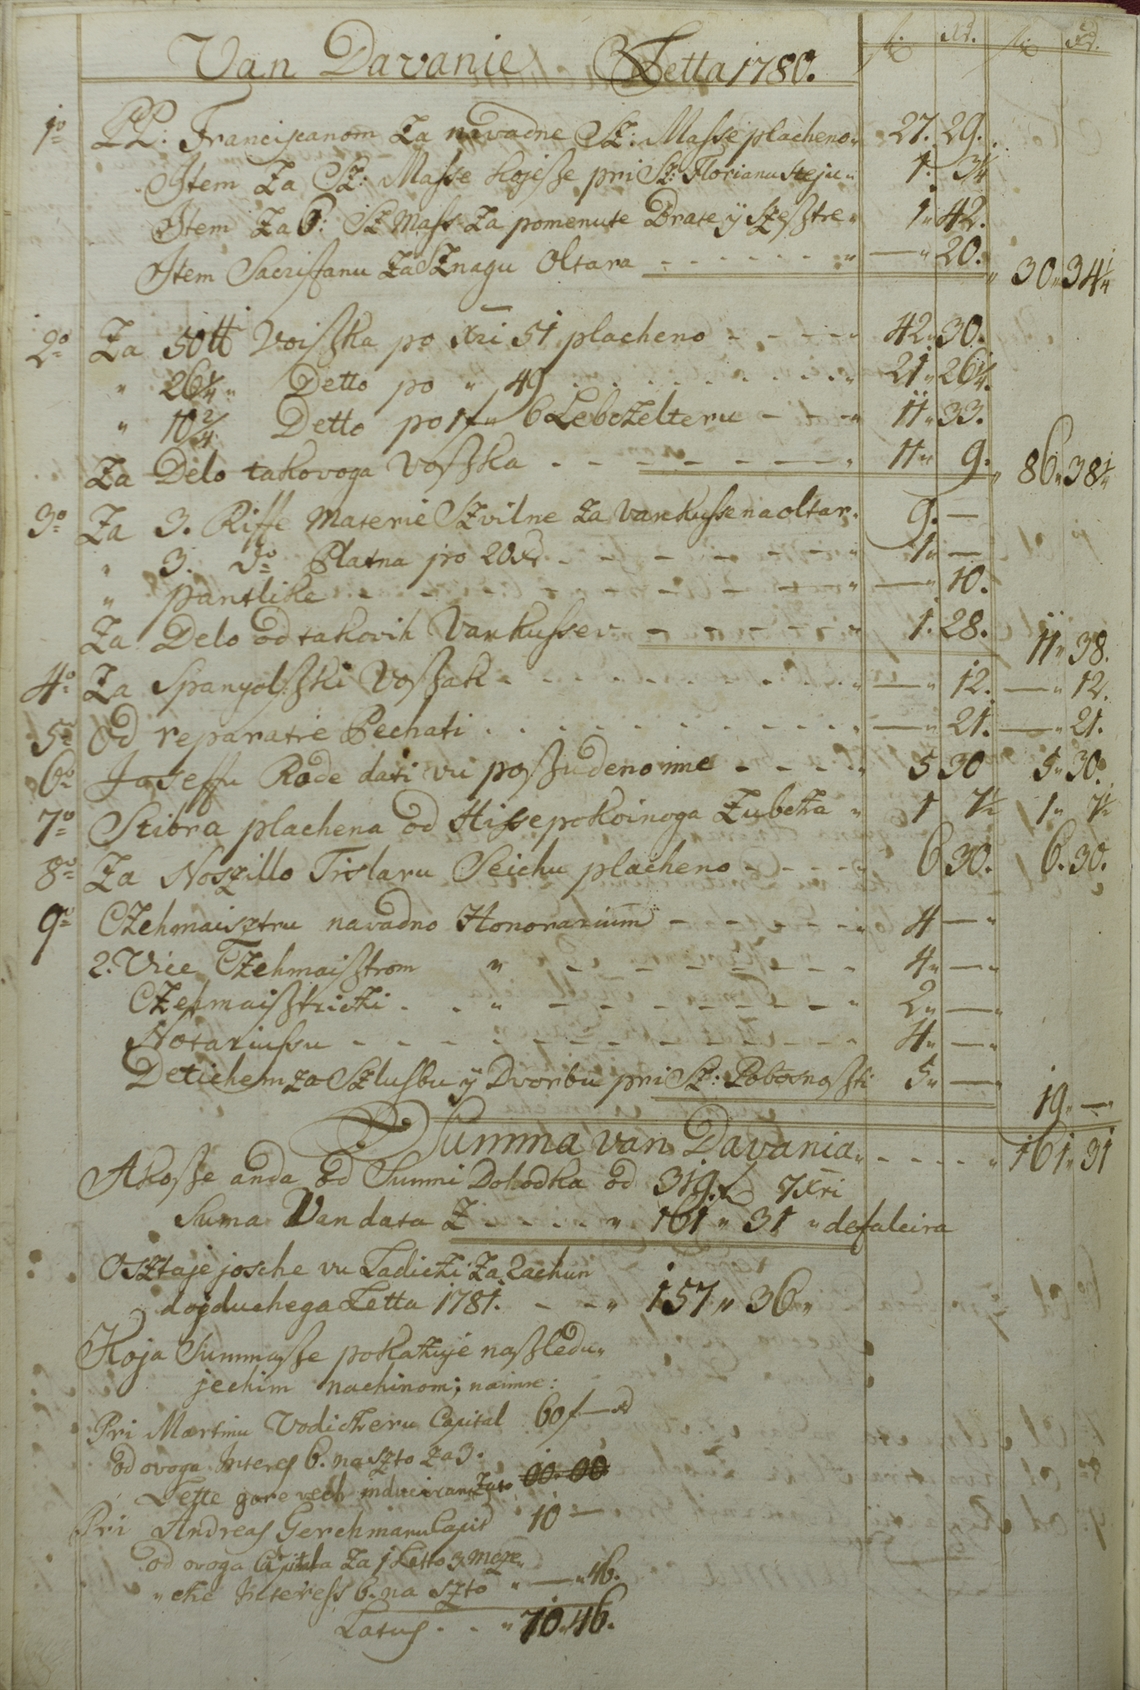 Van Davanie Letta 1780. f. xd. f. xd.
1o PP: Franciscanom Za navadne SZ: Masse placheno 27. 29.
Item Za SZ: Masse kojesze pri SZ: Florianu 1. 3¼
Item Za 6: SZ Mass Za pomenute Brate ÿ Szesztre 1 42.
Item Sacristanu Za SZnagu Oltara — 20. 30 34¼
2o Za 50 tt Voiszka po xri 51 placheno 42 30.
" 26¼ " Detto po " 49 21 26¼.
" 10 2/4 Detto po 1 f " 6 Lebczelteru 11 33.
Za Delo takovoga Voszka 11 9. 86 38¼
3o Za 3. Riffe Materie SZvilne Za Vankusse na oltar. 9. —
" 3. do Platna po 20 xd. 1 —
" pantlike — 10.
Za Delo od takovih Vankussev 1. 28. 11 38.
4o Za Spanyolszki Voszak — 12. — 12.
5o Od reparatie Pechati — 21. — 21.
6o Josefu Rode dati vu poszudeno ime 5 30 5 30.
7o Stibra plachena od Hisse pokoinoga Zubetza 1 7½ 1 7½
8o Za Noszillo Tislaru Seichu placheno 6 30. 6. 30.
9o CZehmaisztru navadno Honorarium 4 —
2. Vice CZehmaisztrom " 4 —
CZehmaisztriczi " 2 —
Notariussu 4 —
Detichem za SZlusbu ÿ Dvorbu pri SZ: Pobosnoszti 5 — 19. —
Summa van Davania 161 31
Akosze anda od Summi Dohodka od 319. f 7 xri
Suma Van data Z 161 " 31 " defalcira
Osztaje josche vu Ladiczi Za Rachun
dojduchega Letta 1781. 157 " 36
Koja Summa sze pokasuje naszledu
jechim nachinom; naimre:
Pri Martinu Vodicheru Capital 60 f — xd
od ovoga Interes 6. na szto Za 3.
Lette gore vech 00. 00
Pri Andreas Gerchmanu Capit 10 —
od ovoga Capitala Za 1 Letto 3 Mesze
che Interess 6. na szto " — " 46.
Latus 70. 46.